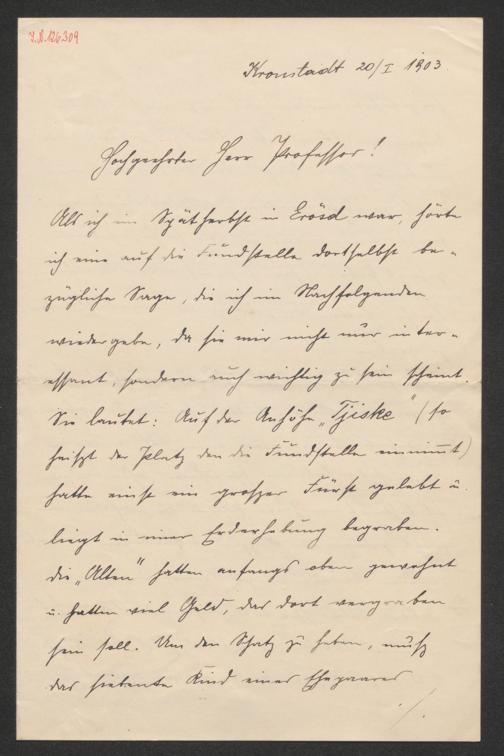 I.N. 126.309
Kronstadt 20/I 1903
Hochgeehrter Herr Professor!
Als ich im Spätherbst in Erösd war, hörte
ich eine auf die Fundstelle dortselbst be-
zügliche Sage, die ich im Nachfolgenden
wiedergebe, da sie mir nicht nur inter-
essant, sondern auch wichtig zu sein scheint.
Sie lautet: Auf der Anhöhe „Tjiske" (so
heiszt der Platz den die Fundstelle einnimmt)
hatte einst ein groszer Fürst gelebt u.
liegt in einer Erderhebung begraben.
Die „Alten" hatten anfangs oben gewohnt
u. hatten viel Geld, das dort vergraben
sein soll. Um den Schatz zu heben, musz
das siebente Kind eines Ehepaares
./.